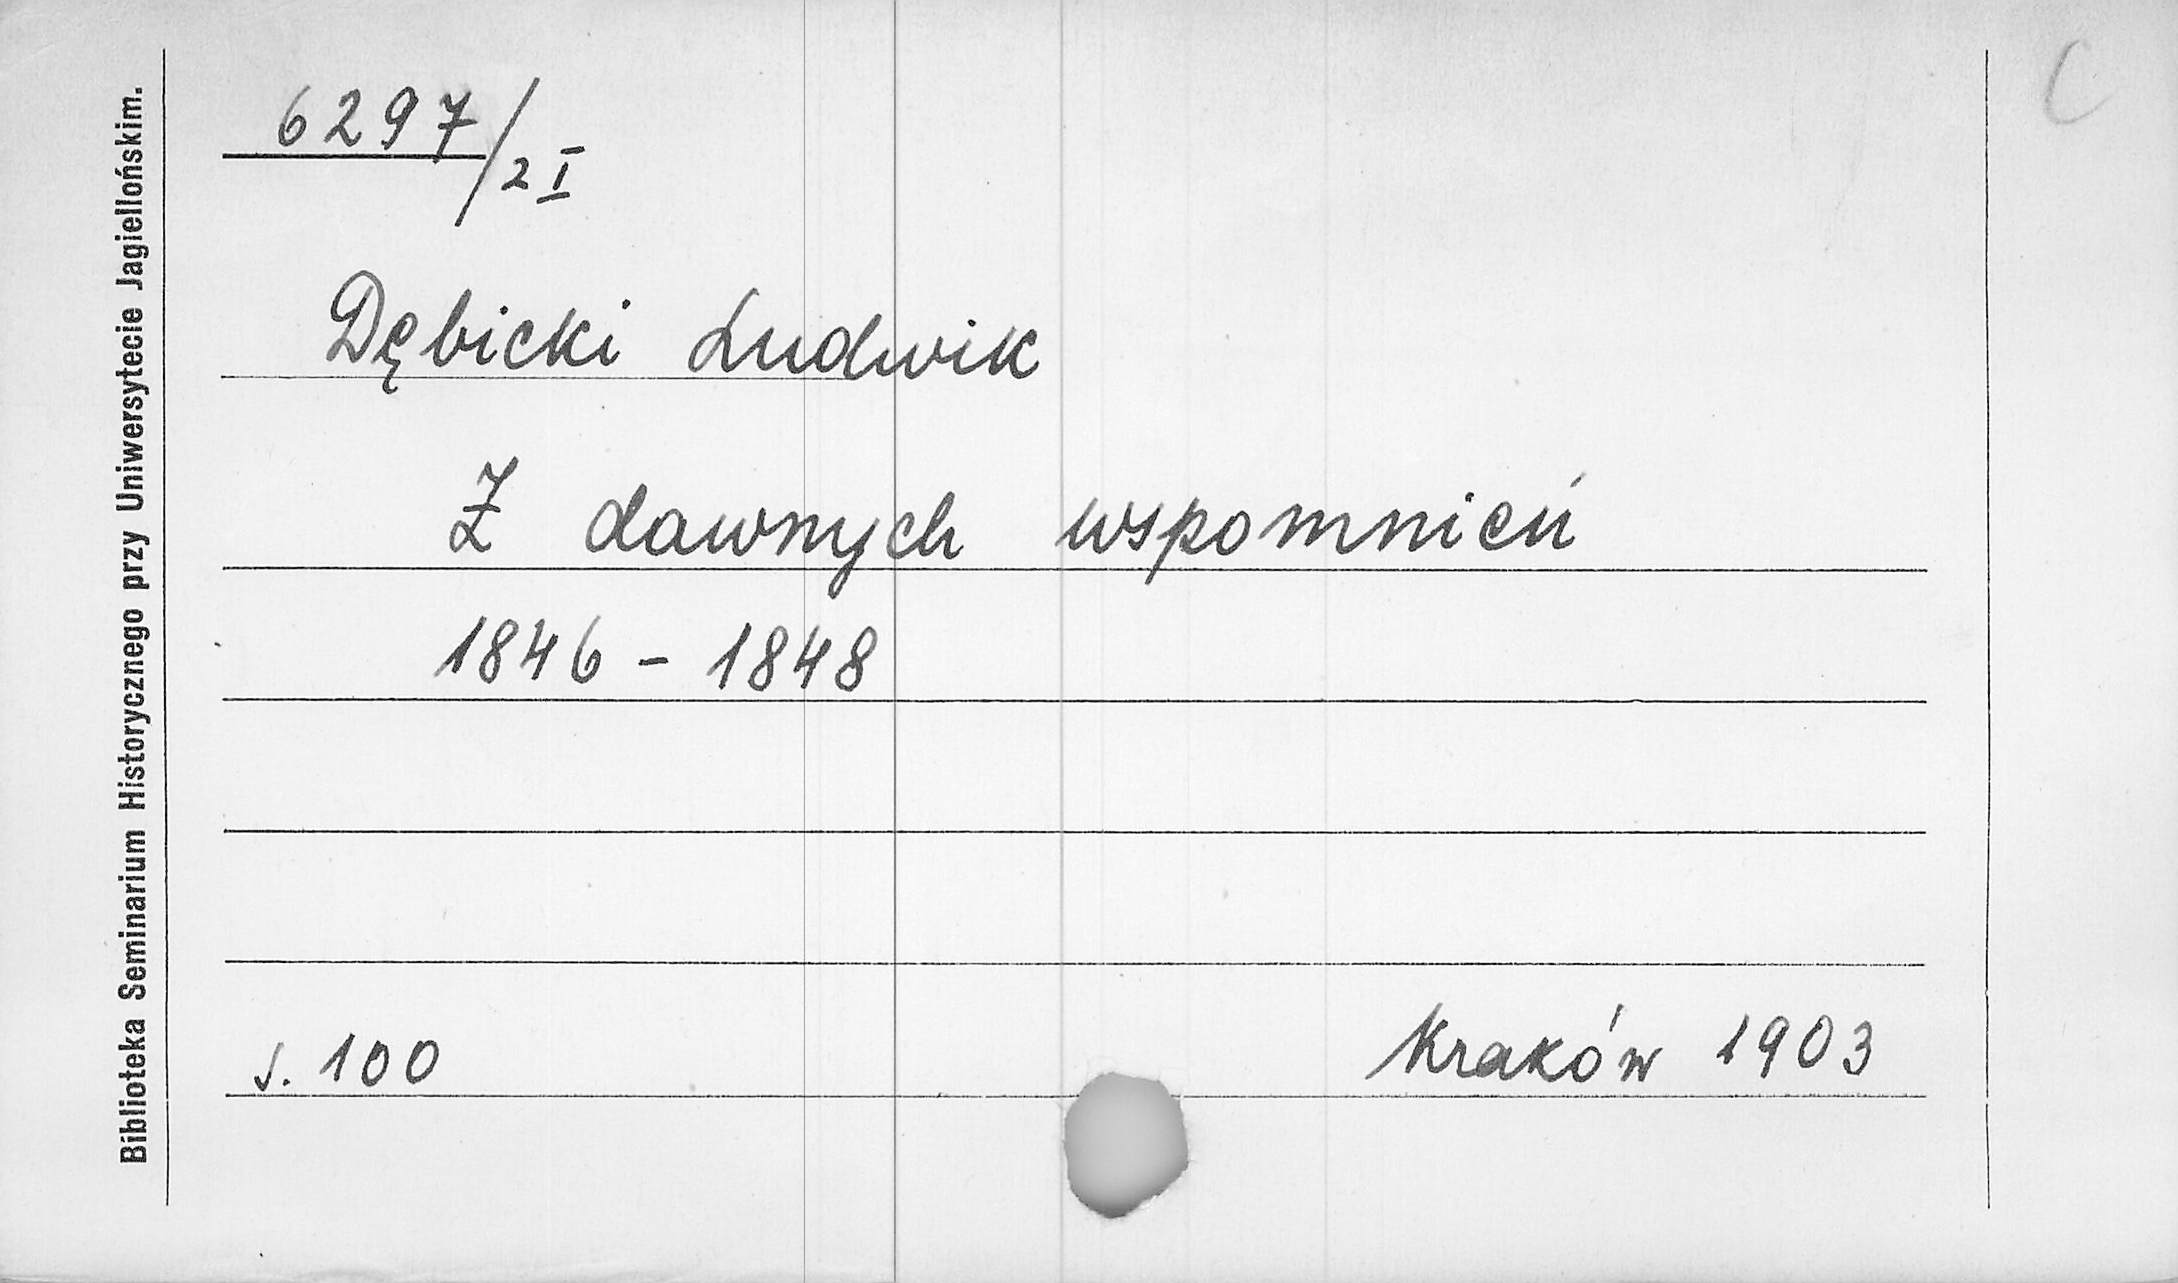 6297/2 I
C
Dębicki Ludwik
Z dawnych wspomnień
1846 - 1848
s. 100 Kraków 1903
Biblioteka Seminarium Historycznego przy Uniwersytecie Jagiellońskim.